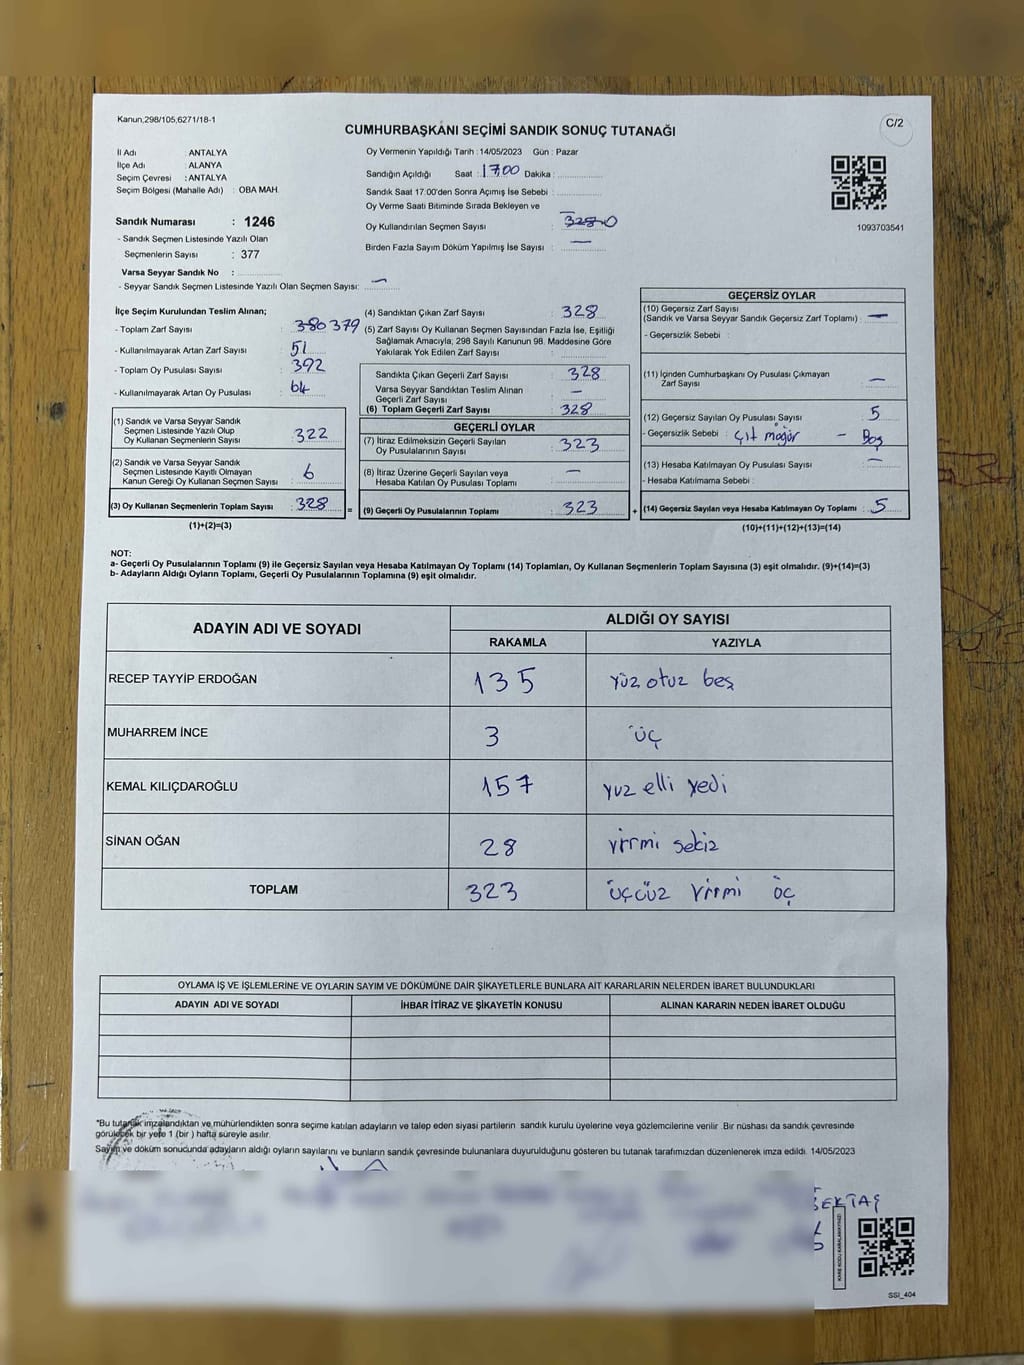 Kanun,298/105,6271/18-1
CUMHURBAŞKANI SEÇİMİ SANDIK SONUÇ TUTANAĞI
C/2
İl Adı : ANTALYA
İlçe Adı : ALANYA
Seçim Çevresi : ANTALYA
Seçim Bölgesi (Mahalle Adı) : OBA MAH.
Sandık Numarası : 1246
- Sandık Seçmen Listesinde Yazılı Olan
Seçmenlerin Sayısı : 377
Varsa Seyyar Sandık No :
- Seyyar Sandık Seçmen Listesinde Yazılı Olan Seçmen Sayısı: —
Oy Vermenin Yapıldığı Tarih : 14/05/2023 Gün : Pazar
Sandığın Açıldığı Saat : 17.00 Dakika :
Sandık Saat 17:00'den Sonra Açımış İse Sebebi :
Oy Verme Saati Bitiminde Sırada Bekleyen ve
Oy Kullandırılan Seçmen Sayısı : 328 0
Birden Fazla Sayım Döküm Yapılmış İse Sayısı : —
1093703541
İlçe Seçim Kurulundan Teslim Alınan;
- Toplam Zarf Sayısı : 380 379
- Kullanılmayarak Artan Zarf Sayısı : 51
- Toplam Oy Pusulası Sayısı : 392
- Kullanılmayarak Artan Oy Pusulası : 64
(1) Sandık ve Varsa Seyyar Sandık
Seçmen Listesinde Yazılı Olup
Oy Kullanan Seçmenlerin Sayısı : 322
(2) Sandık ve Varsa Seyyar Sandık
Seçmen Listesinde Kayıtlı Olmayan
Kanun Gereği Oy Kullanan Seçmen Sayısı : 6
(3) Oy Kullanan Seçmenlerin Toplam Sayısı : 328
(1)+(2)=(3)
=
(4) Sandıktan Çıkan Zarf Sayısı : 328
(5) Zarf Sayısı Oy Kullanan Seçmen Sayısından Fazla İse, Eşitliği
Sağlamak Amacıyla, 298 Sayılı Kanunun 98. Maddesine Göre
Yakılarak Yok Edilen Zarf Sayısı :
Sandıkta Çıkan Geçerli Zarf Sayısı : 328
Varsa Seyyar Sandıktan Teslim Alınan
Geçerli Zarf Sayısı : —
(6) Toplam Geçerli Zarf Sayısı : 328
GEÇERLİ OYLAR
(7) İtiraz Edilmeksizin Geçerli Sayılan
Oy Pusulasının Sayısı : 323
(8) İtiraz Üzerine Geçerli Sayılan veya
Hesaba Katılan Oy Pusulası Toplamı : —
(9) Geçerli Oy Pusulalarının Toplamı : 323
+
GEÇERSİZ OYLAR
(10) Geçersiz Zarf Sayısı
(Sandık ve Varsa Seyyar Sandık Geçersiz Zarf Toplamı) : —
- Geçersizlik Sebebi :
(11) İçinden Cumhurbaşkanı Oy Pusulası Çıkmayan
Zarf Sayısı : —
(12) Geçersiz Sayılan Oy Pusulası Sayısı : 5
- Geçersizlik Sebebi : çıt möğür - Boş
(13) Hesaba Katılmayan Oy Pusulası Sayısı : —
- Hesaba Katılmama Sebebi :
(14) Geçersiz Sayılan veya Hesaba Katılmayan Oy Toplamı : 5
(10)+(11)+(12)+(13)=(14)
NOT:
a- Geçerli Oy Pusulalarının Toplamı (9) ile Geçersiz Sayılan veya Hesaba Katılmayan Oy Toplamı (14) Toplamları, Oy Kullanan Seçmenlerin Toplam Sayısına (3) eşit olmalıdır. (9)+(14)=(3)
b- Adayların Aldığı Oyların Toplamı, Geçerli Oy Pusulalarının Toplamına (9) eşit olmalıdır.
ADAYIN ADI VE SOYADI ALDIĞI OY SAYISI
RAKAMLA YAZIYLA
RECEP TAYYİP ERDOĞAN 135 yüz otuz beş
MUHARREM İNCE 3 üç
KEMAL KILIÇDAROĞLU 157 yuz elli yedi
SİNAN OĞAN 28 yirmi sekiz
TOPLAM 323 üçcüz yirmi üç
OYLAMA İŞ VE İŞLEMLERİNE VE OYLARIN SAYIM VE DÖKÜMÜNE DAİR ŞİKAYETLERLE BUNLARA AİT KARARLARIN NELERDEN İBARET BULUNDUKLARI
ADAYIN ADI VE SOYADI İHBAR İTİRAZ VE ŞİKAYETİN KONUSU ALINAN KARARIN NEDEN İBARET OLDUĞU
*Bu tutanak imzalandıktan ve mühürlendikten sonra seçime katılan adayların ve talep eden siyasi partilerin sandık kurulu üyelerine veya gözlemcilerine verilir .Bir nüshası da sandık çevresinde
görülecek bir yere 1 (bir ) hafta süreyle asılır.
Sayım ve döküm sonucunda adayların aldığı oyların sayılarını ve bunların sandık çevresinde bulunanlara duyurulduğunu gösteren bu tutanak tarafımızdan düzenlenerek imza edildi. 14/05/2023
BEKTAŞ
KARE KODU KARALAMAYINIZ!
SSİ_404